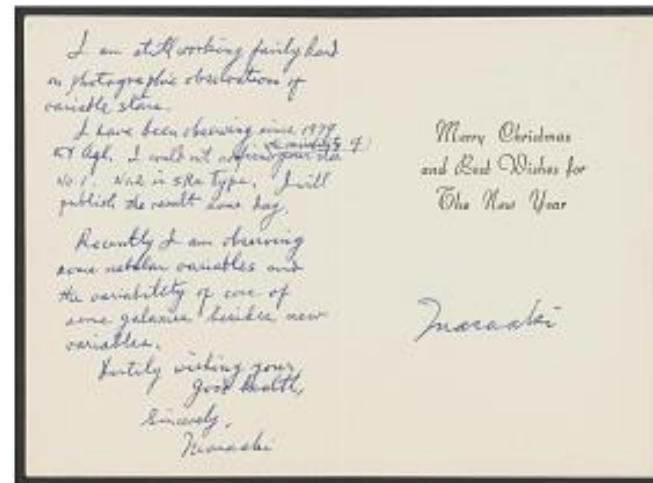 I am still working fairly hard
on photographic observations of
variable stars.
I have been observing since 1979
I could not your
No. 1. No. 2 is SRa type. I will
publish the result some day.
Recently I am observing
some nebular variables and
the variability of core of
some galaxies besides new
variables.
wishing your
good health,
Sincerely,
Masaaki
Merry Christmas
and Best Wishes for
The New Year
Masaaki